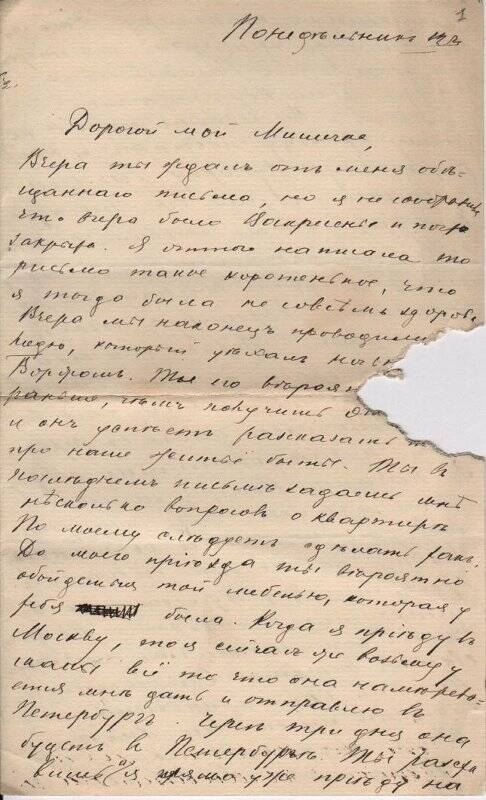 1
Понедѣльникъ
Дорогой мой Мишичка,
Вчера ты ждалъ отъ меня обѣ-
щаннаго письма, но я не сообразила
что вчера было Воскрисенье и почта
закрыта. Я оттого написала то
письмо такое коротенькое, что
я тогда была не совсѣмъ здорова.
Вчера мы наконецъ проводили
который уѣхалъ
Ты его вѣроят
раньше, чѣмъ получишь это
и онъ успѣетъ разсказать
про наше житье бытье. Ты въ
послѣднемъ письмѣ задаешь мнѣ
нѣсколько вопросовъ о квартирѣ
По моему слѣдуетъ сдѣлать такъ.
До моего пріѣзда ты вѣроятно
обойдешься той мебелью, которая у
тебя была. Когда я пріѣду въ
Москву, то я сейчасъ же возьму у
мамы всё то что она намѣрева-
ется мнѣ дать и отправлю въ
Петербургъ. Черезъ три дня она
будетъ въ Петербургѣ. Ты
я прямо уже пріѣду на